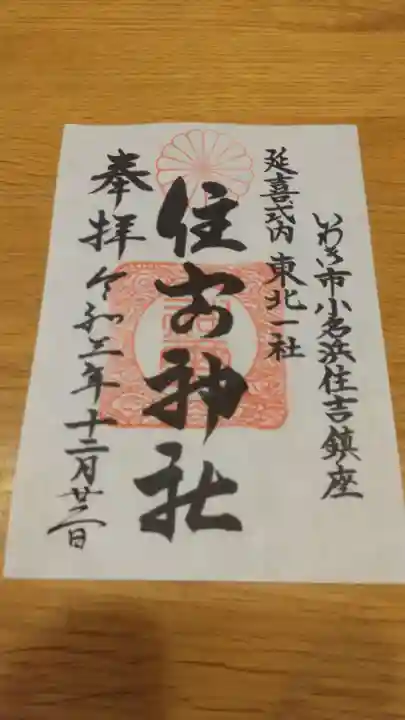 いわき市小名浜住吉鎮座
延喜式内 東北一社
住吉神社
奉拝 令和三年十二月廿二日